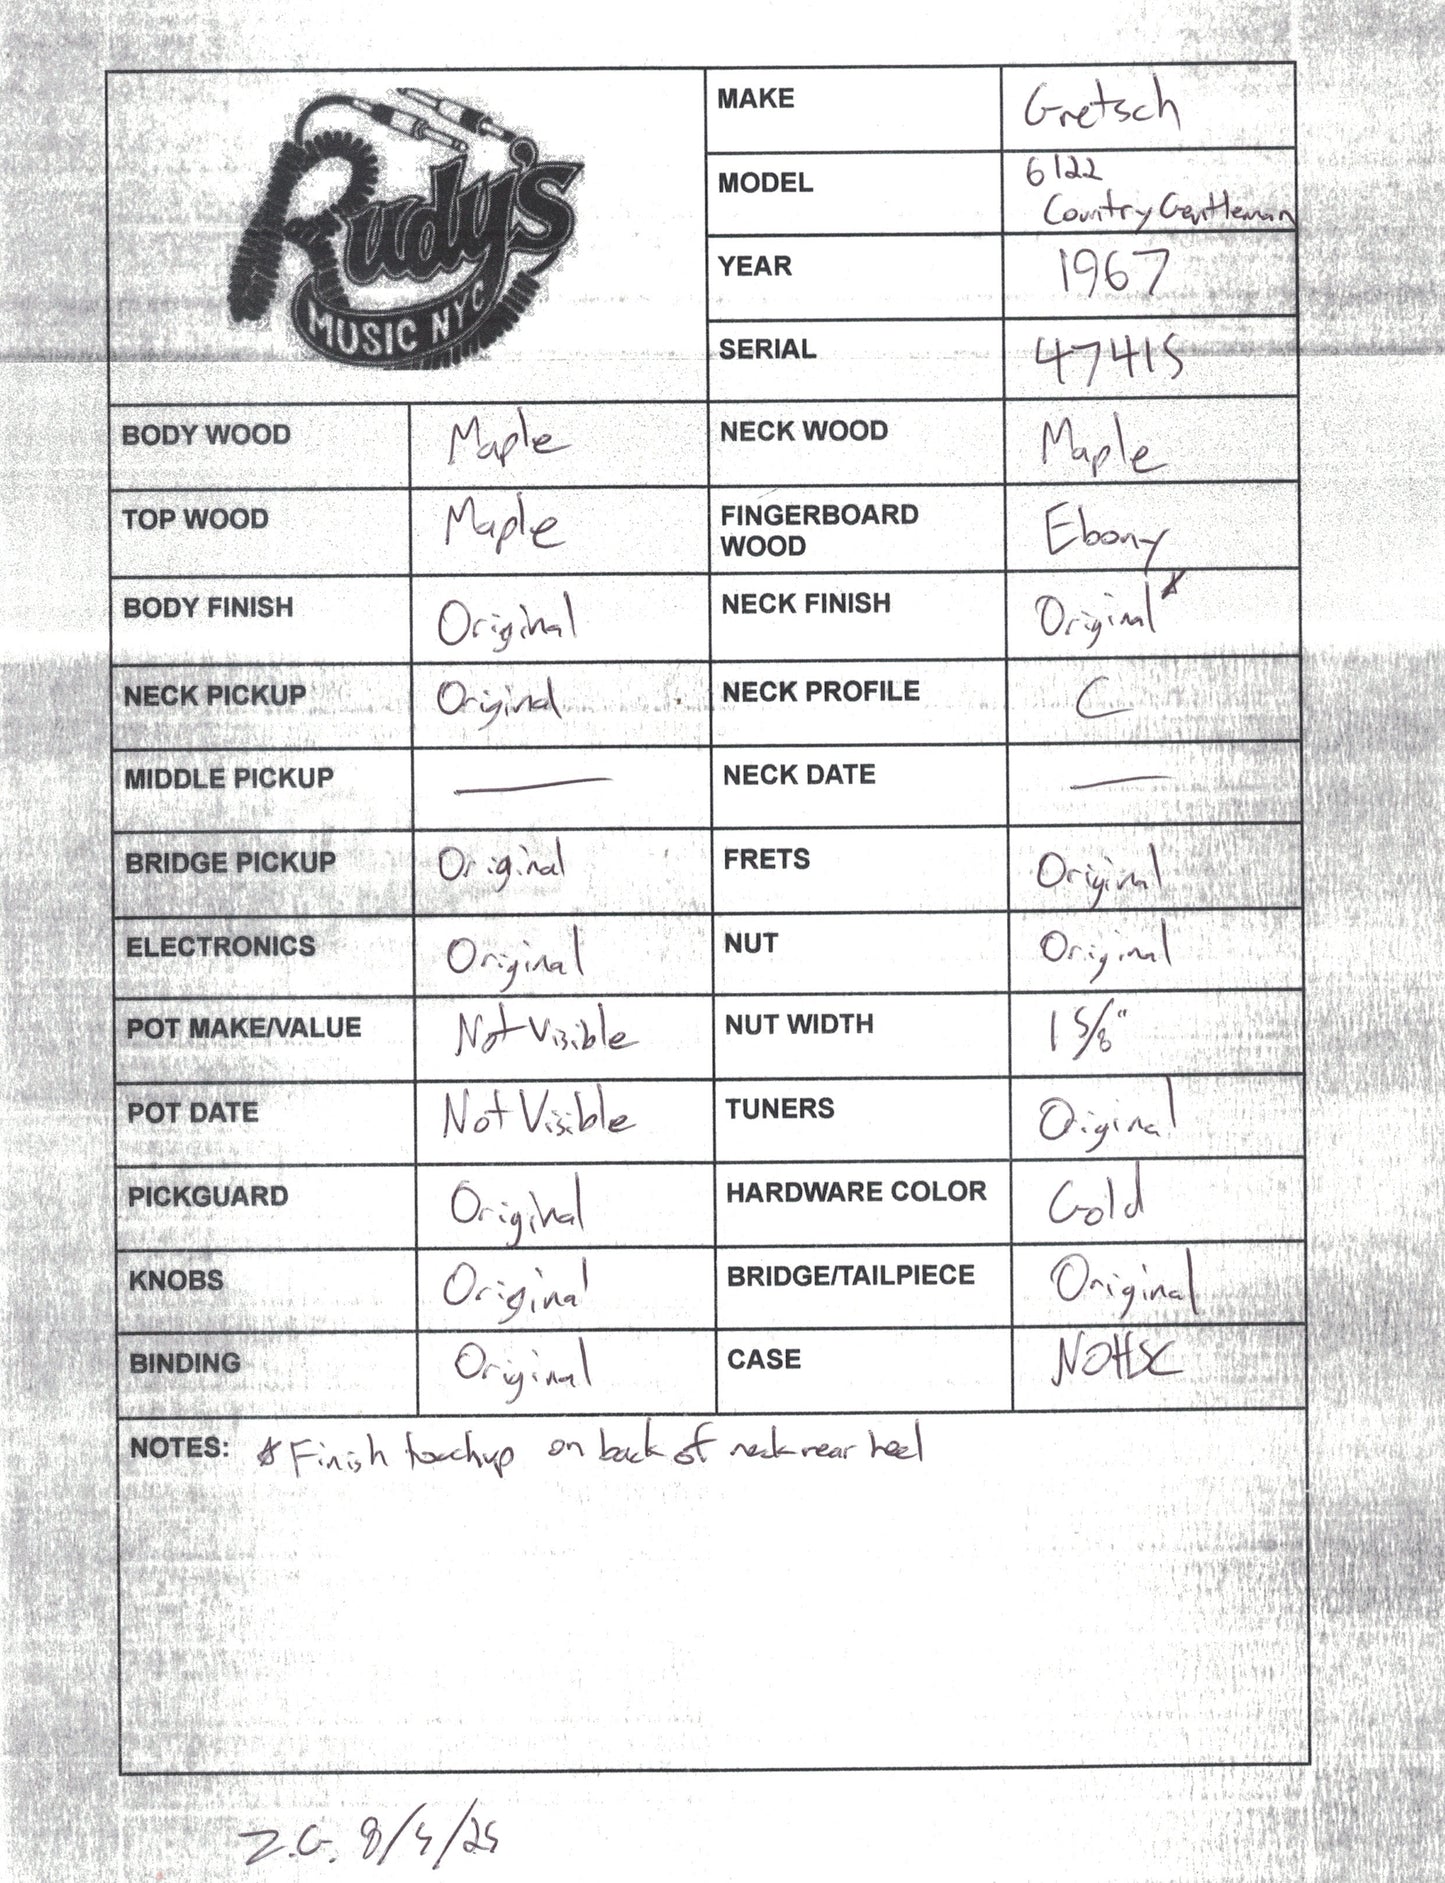 Rudy's
MUSIC NYC
MAKE Gretsch
MODEL 6122
Country Gentleman
YEAR 1967
SERIAL 47415
BODY WOOD Maple NECK WOOD Maple
TOP WOOD Maple FINGERBOARD
WOOD Ebony
BODY FINISH Original NECK FINISH Original*
NECK PICKUP Original NECK PROFILE C
MIDDLE PICKUP — NECK DATE —
BRIDGE PICKUP Original FRETS Original
ELECTRONICS Original NUT Original
POT MAKE/VALUE Not Visible NUT WIDTH 1 5/8"
POT DATE Not Visible TUNERS Original
PICKGUARD Original HARDWARE COLOR Gold
KNOBS Original BRIDGE/TAILPIECE Original
BINDING Original CASE NOHSC
NOTES: * Finish touchup on back of neck near heel
Z.G. 8/5/25